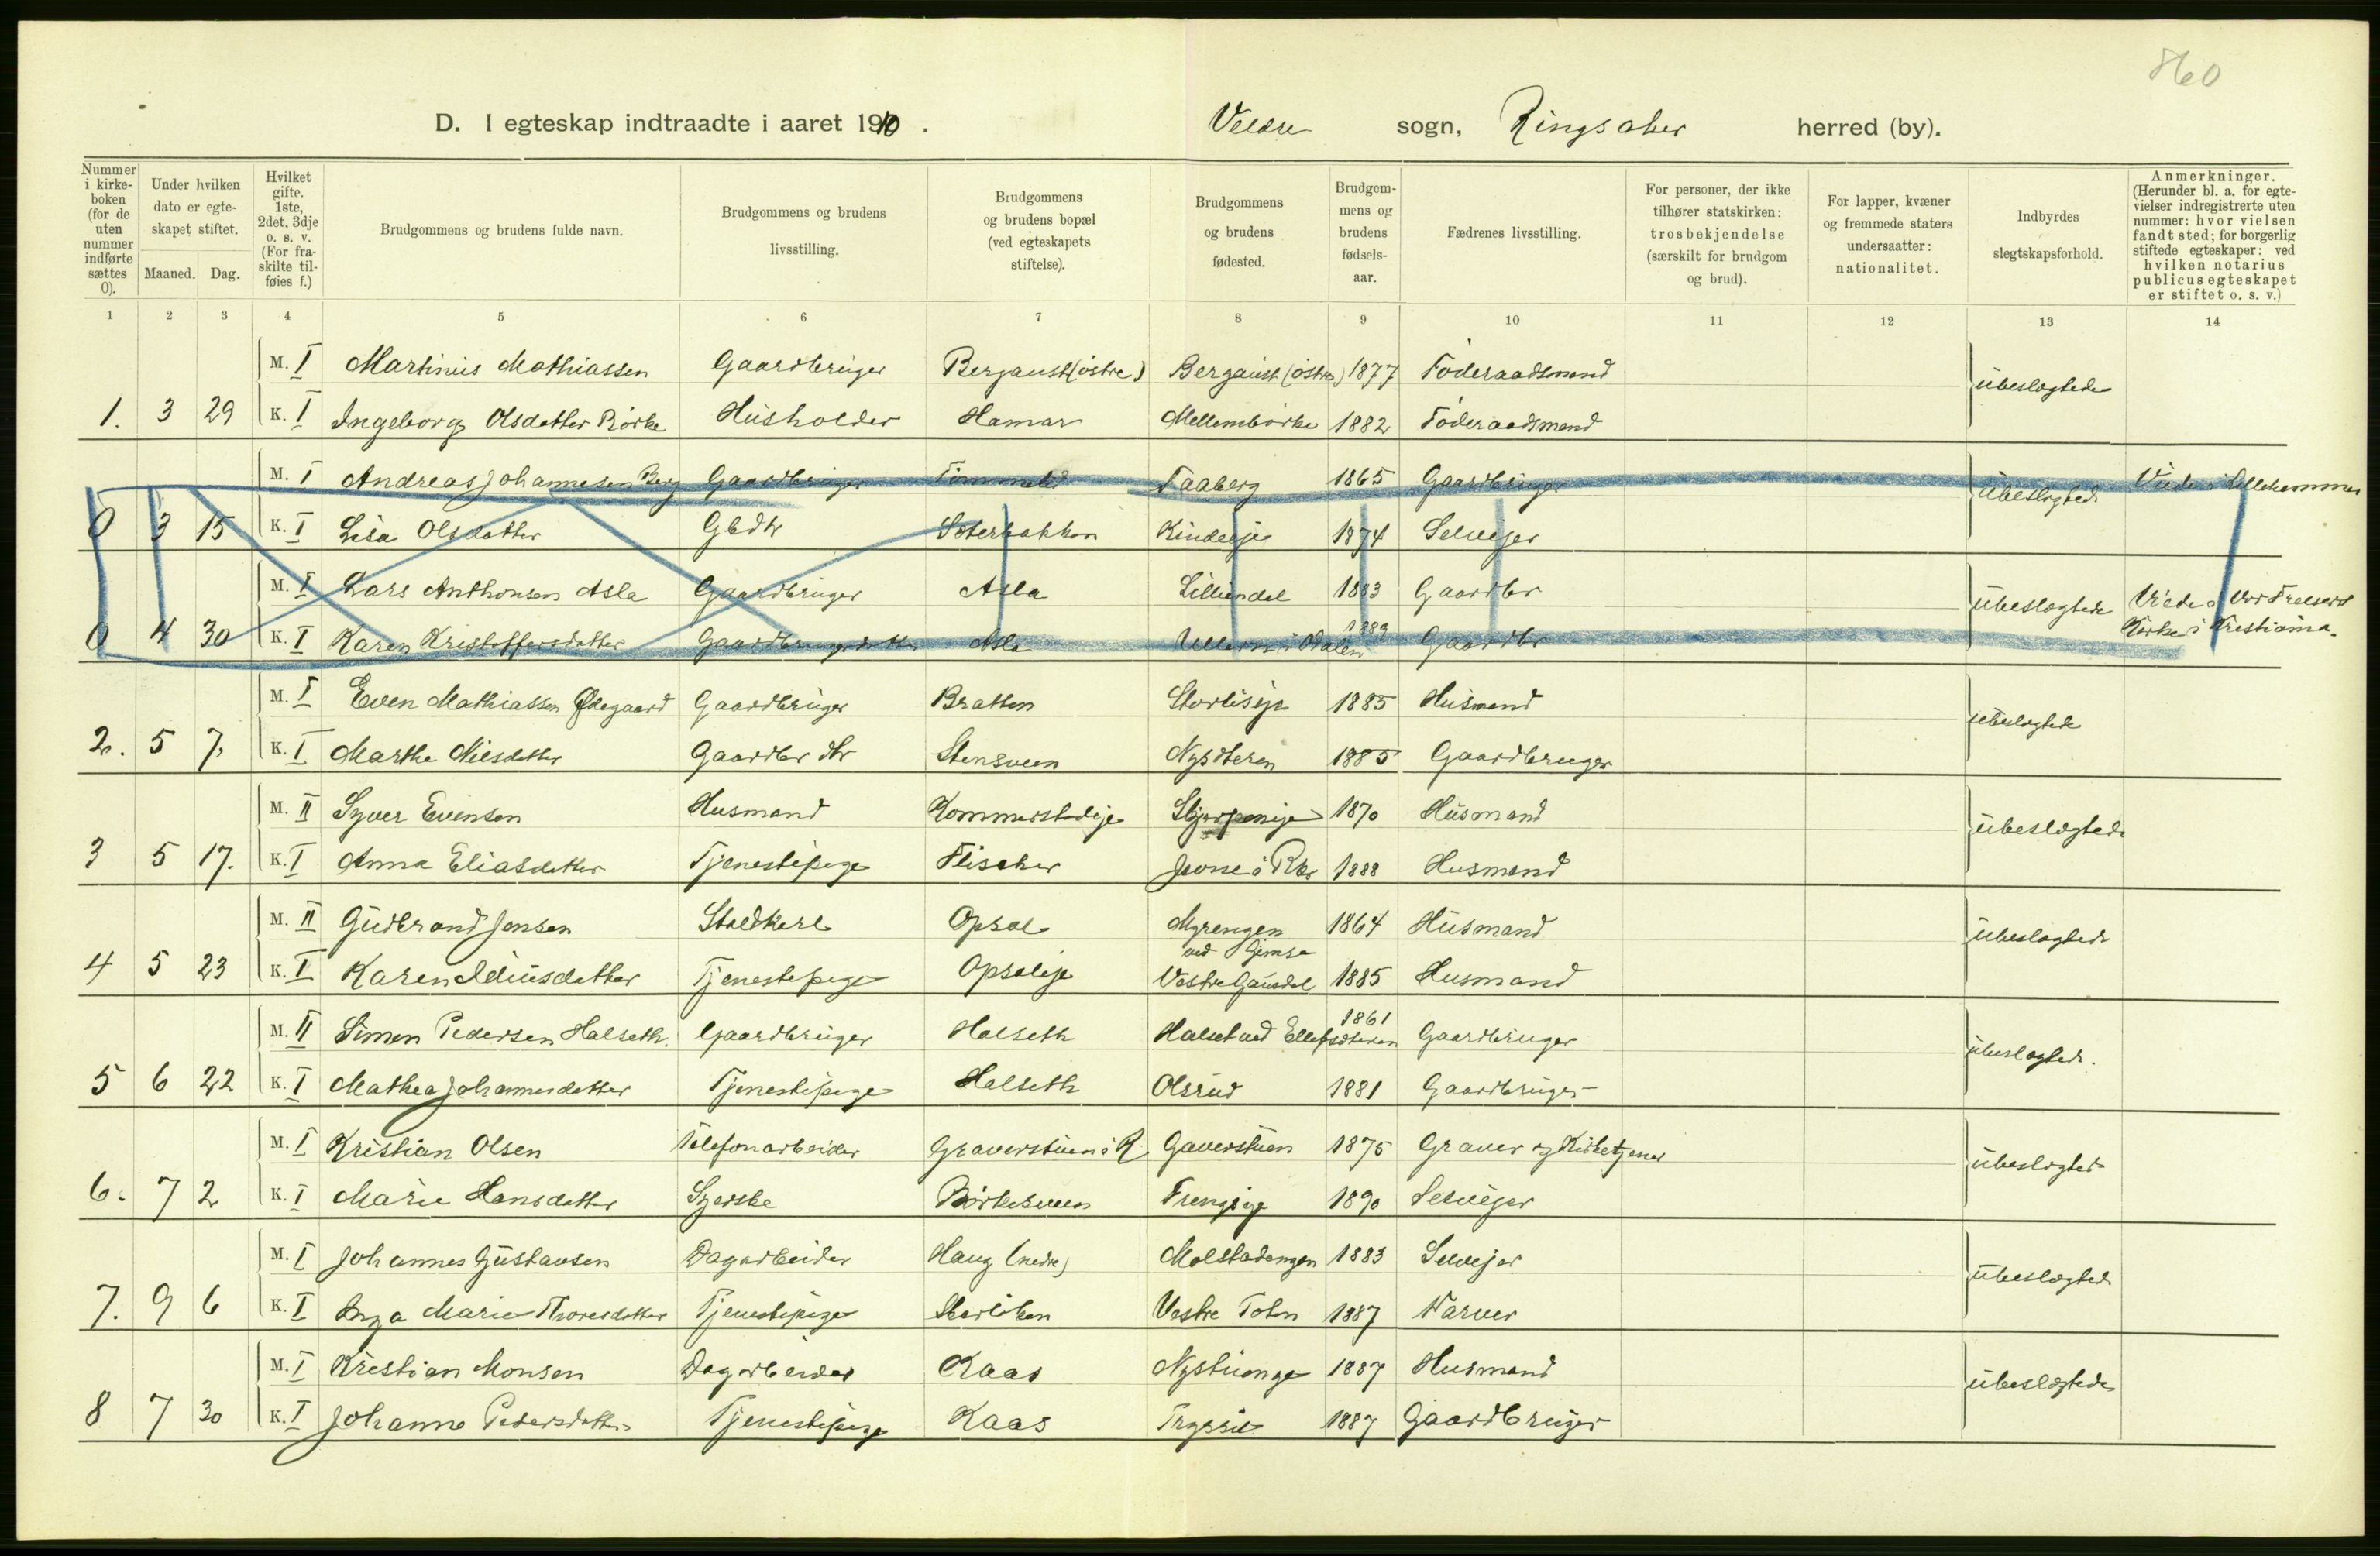 860
D. I egteskap indtraadte i aaret 1910. Veldre sogn, Ringsaker herred (by).
Nummer i kirkeboken (for de uten nummer indførte sættes 0).
Under hvilken dato er egteskapet stiftet. Maaned. Dag.
Hvilket gifte. 1ste, 2det, 3dje o. s. v. (For fraskilte tilføies f.)
Brudgommens og brudens fulde navn.
Brudgommens og brudens livsstilling.
Brudgommens og brudens bopæl (ved egteskapets stiftelse).
Brudgommens og brudens fødested.
Brudgommens og brudens fødselsaar.
Fædrenes livsstilling.
For personer, der ikke tilhører statskirken: trosbekjendelse (særskilt for brudgom og brud).
For lapper, kvæner og fremmede staters undersaatter: nationalitet.
Indbyrdes slegtskapsforhold.
Anmerkninger. (Herunder bl. a. for egtevielser indregistrerte uten nummer: hvor vielsen fandt sted; for borgerlig stiftede egteskaper: ved hvilken notarius publicus egteskapet er stiftet o. s. v.)
1 2 3 4 5 6 7 8 9 10 11 12 13 14
M. I Martinus Mathiassen Gaardbruger Bergaust (østre) Bergaust (østre) 1877 Föderaadsmand ubeslegtede
1. 3 29 K. I Ingeborg Olsdatter Börke Husholder Hamar Mellembörke 1882 Föderaadsmand
M. I Andreas Johannesen Berg Gaardbruger Faaberg 1865 Gaardbruger ubeslegtede Viede i Lillehammer
0 3 15 K. I Lisa Olsdatter Gbdtr Sæterbakken Kindseje 1874 Selvejer
M. I Lars Anthonsen Asla Gaardbruger Asla Lilliendal 1883 Gaardbr ubeslegtede Viede i Vor Frelsers
0 4 30 K. I Karen Kristoffersdatter Gaardbrugerdatter Asla Ullern i Odalen 1889 Gaardbr Kirke i Kristiania.
M. I Even Mathiassen Ødegaard Gaardbruger Bratten Storliseje 1885 Husmand ubeslegtede
2. 5 7. K. I Marthe Nilsdatter Gaardbr dtr Stensveen Nysæteren 1885 Gaardbruger
M. II Syver Evensen Husmand Kommerstadeje 1870 Husmand ubeslegtede
3 5 17. K. I Anna Eliasdatter Tjenestepige Flisaker 1888 Husmand
M. II Gudbrand Jensen Staldkarl Opsal Myrengen 1864 Husmand ubeslegtede
4 5 23 K. I Karen Tjenestepige Opsaleje Vestre Gausdal 1885 Husmand
M. II Simen Pedersen Halseth. Gaardbruger Halseth Halset ved 1861 Gaardbruger ubeslegtede.
5 6 22 K. I Mathea Johannesdatter Tjenestepige Halseth Olsrud 1881 Gaardbruger
M. I Kristian Olsen Telefonarbeider Graverstuen i R Gaverstuen 1875 Graver og Kirketjener ubeslegtede
6. 7 2 K. I Marie Hansdatter Syerske Börkesveen Frengeje 1890 Selvejer
M. I Johannes Gustavsen Dagarbeider Haug (nedre) Molstadengen 1883 Selvejer ubeslegtede
7. 9 6 K. I Inga Marie Thoresdatter Tjenestepige Vestre Toten 1887 Farver
M. I Kristian Monsen Dagarbeider Kaas 1887 Husmand ubeslegtede
8 7 30 K. I Johanne Pedersdatter Tjenestepige Kaas Trysil 1887 Gaardbruger